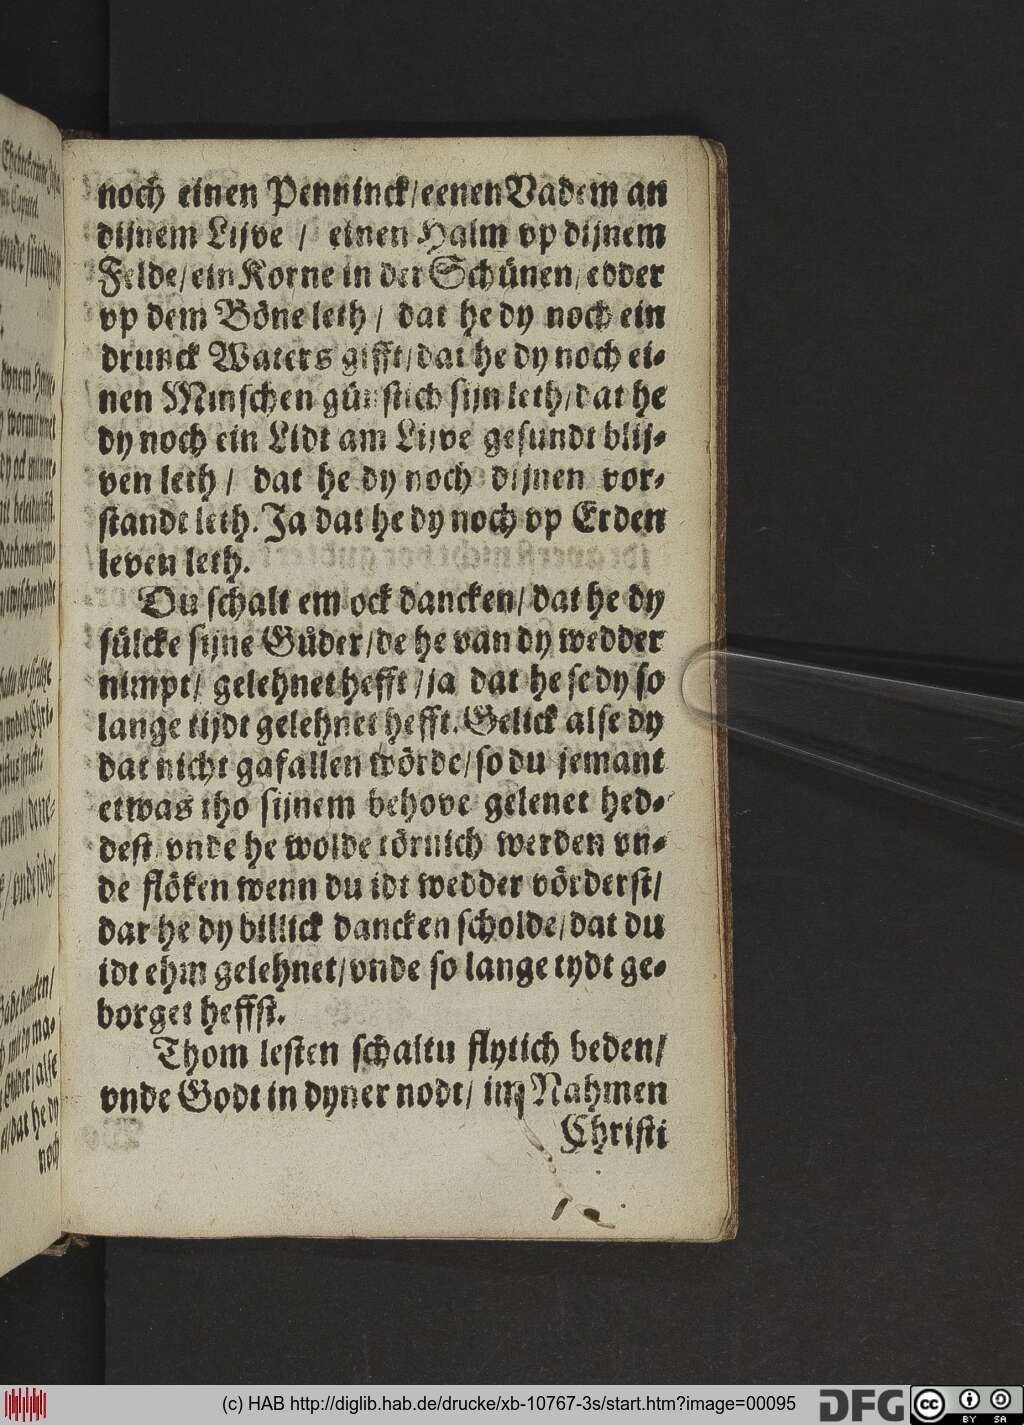 noch einen Penninck/eenen Vadem an
dijnem Lijve / einen Halm vp dijnem
Felde/ein Korne in der Schünen/edder
vp dem Böne leth/ dat he dy noch ein
drunck Waters gifft/dat he dy noch ei-
nen Minschen günstich sijn leth/dat he
dy noch ein Lidt am Lijve gesundt blij-
ven leth/ dat he dy noch dijnen vor-
standt leth. Ja dat he dy noch vp Erden
leven leth.
Du schalt em ock dancken/dat he dy
sülcke sijne Gůder/de he van dy wedder
nimpt/ gelehnet hefft/ja dat he se dy so
lange tijdt gelehnet hefft. Gelick alse dy
dat nicht gafallen wörde/so du jemant
etwas tho sijnem behove gelenet hed-
dest vnde he wolde törnich werden vn-
de flöken wenn du idt wedder vörderst/
dar he dy billick dancken scholde/dat du
idt ehm gelehnet/vnde so lange tydt ge-
borget heffst.
Thom lesten schaltu flytich beden/
vnde Godt in dyner nodt/ im Nahmen
Christi
(c) HAB http://diglib.hab.de/drucke/xb-10767-3s/start.htm?image=00095
DFG
cc
BY SA